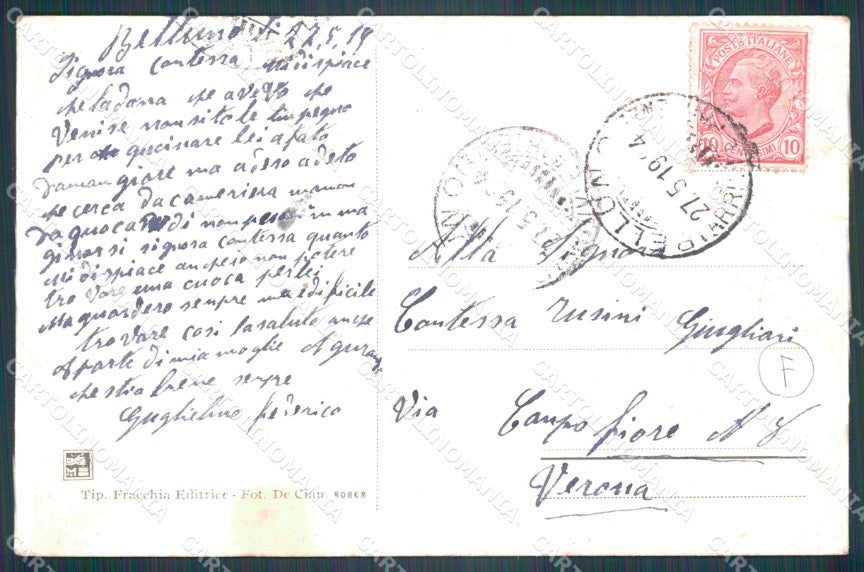 Belluno li 27.5.19
Signora contessa midispiace
che ladona che avevo che
Venise non sitole limpegno
per cucinare lei a fato
damangiare ma adeso adeto
che cerca da cameriera ma non
da quoca di non
signora contessa quanto
mi dispiace non potere
trovare una cuoca per lei
Ma guardero sempre ma edificile
trovare cosi la saluto anche
Aparte di mia moglie Agurando
che stia bene sempre
Guglielmo Federico
Tip. Fracchia Editrice - Fot. De Cian 80868
POSTE ITALIANE
10 CENTESIMI 10
27.5.19
27 5 19
Alla Signora
Contessa Giugliari
Via Campo fiore N 8
Verona
F
CARTOLINOMANIA